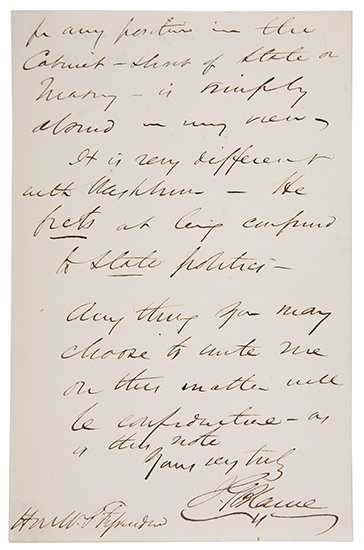 for any position in the
Cabinet - short of State or
Treasy - is simply
absurd in my view -
It is very different
with Washburn - He
frets at being confined
to State politics -
Any thing you may
choose to write me
on this matter will
be confidential - as
is this note
Yours very truly
J G Blaine
Hon W. P. Fessenden